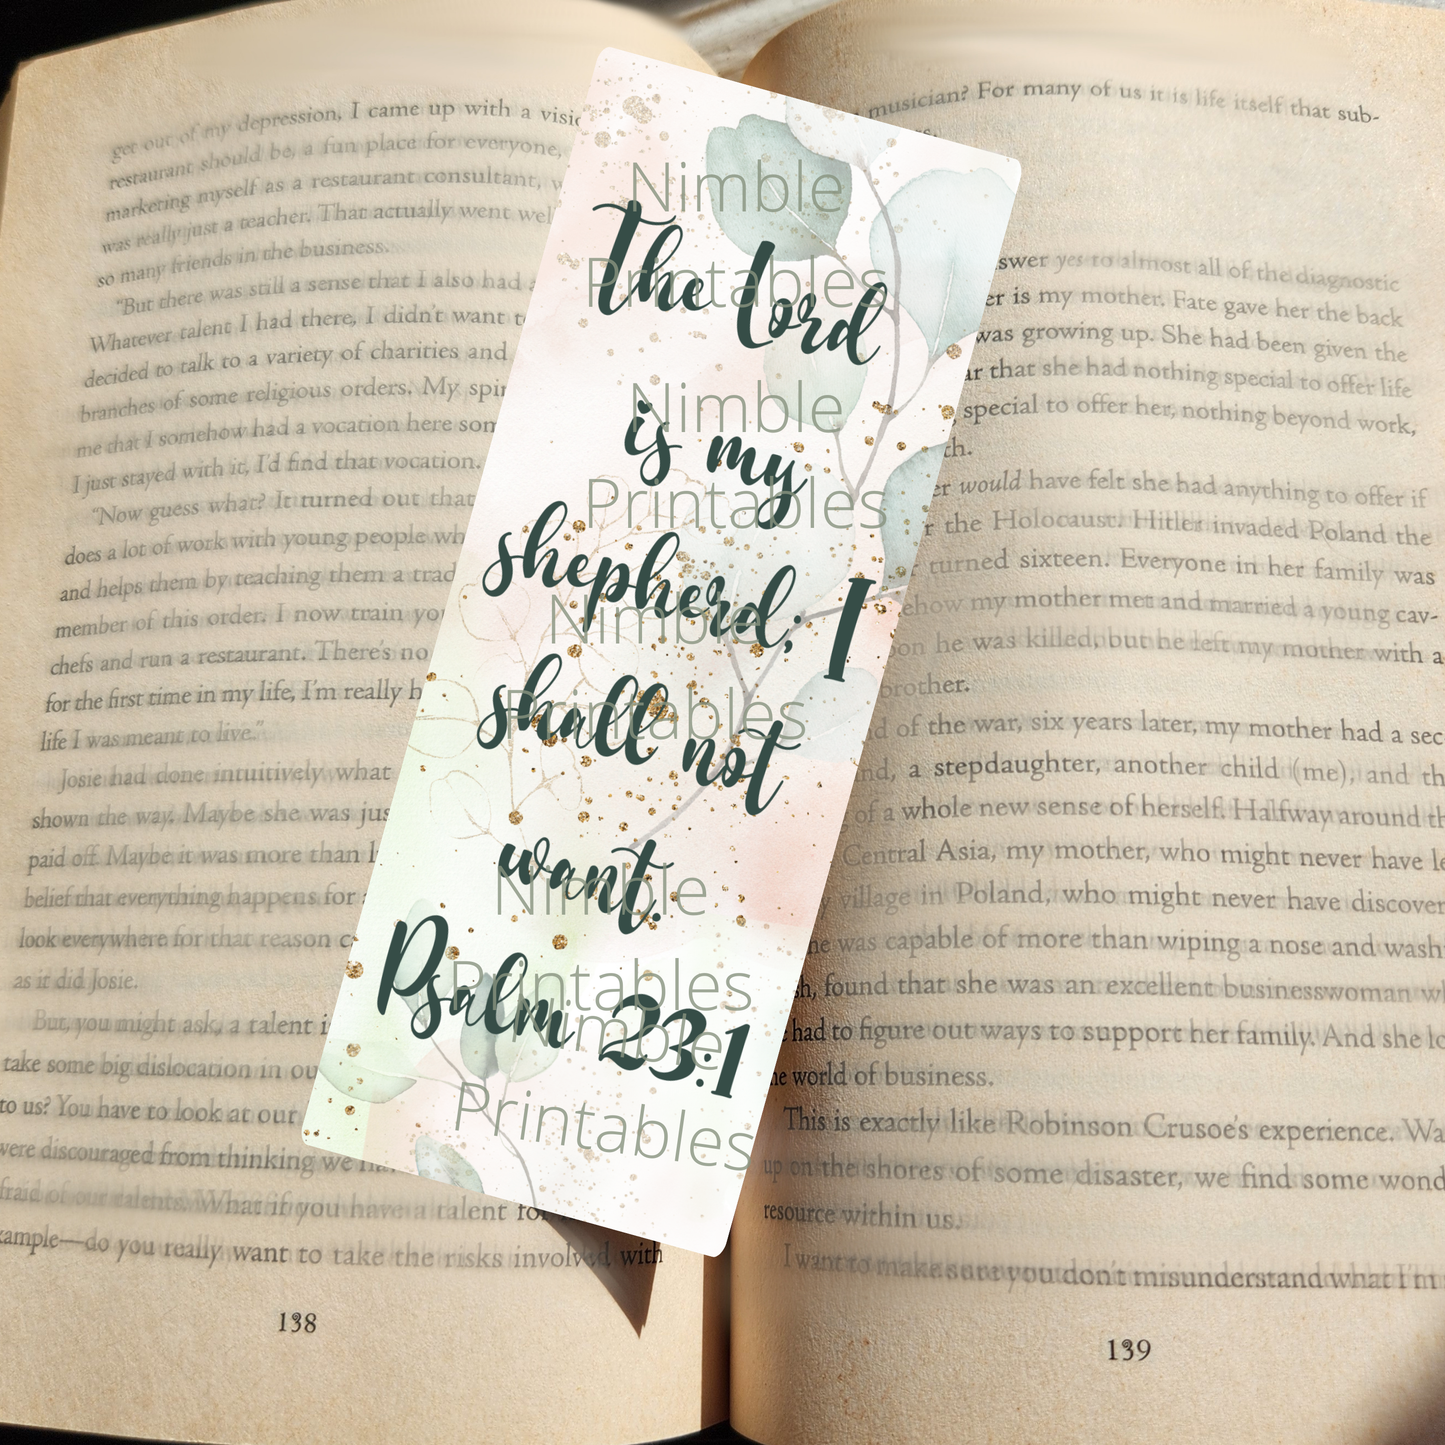 get out of my depression, I came up with a
restaurant should be, a fun place for everyone,
marketing myself as a restaurant consultant,
was really just a teacher. That actually went
so many friends in the business.
"But there was still a sense that I also had
Whatever talent I had there, I didn't want
decided to talk to a variety of charities and
branches of some religious orders. My
me that I somehow had a vocation here
I just stayed with it, I'd find that vocation.
"Now guess what? It turned out that
does a lot of work with young people
and helps them by teaching them a
member of this order. I now train
chefs and run a restaurant. There's no
for the first time in my life, I'm really
life I was meant to live."
Josie had done intuitively what
shown the way. Maybe she was
paid off. Maybe it was more than
belief that everything happens for
look everywhere for that reason
as it did Josie.
But, you might ask, a talent
take some big dislocation in
to us? You have to look at our
were discouraged from thinking we
of our talents. What if you have a talent
do you really want to take the risks involved with
138
Nimble
Printables
The Lord
Nimble
is my
Printables
shepherd; I
Nimble
shall not
Printables
want.
Nimble
Psalm 23:1
Printables
Nimble
Printables
musician? For many of us it is life itself that sub-
yes to almost all of the diagnostic
is my mother. Fate gave her the back
was growing up. She had been given the
that she had nothing special to offer life
special to offer her, nothing beyond work,
would have felt she had anything to offer if
the Holocaust. Hitler invaded Poland the
turned sixteen. Everyone in her family was
my mother met and married a young cav-
he was killed, but he left my mother with a
brother.
of the war, six years later, my mother had a
a stepdaughter, another child (me), and
of a whole new sense of herself. Halfway around
Central Asia, my mother, who might never have
village in Poland, who might never have
was capable of more than wiping a nose and
found that she was an excellent businesswoman
had to figure out ways to support her family. And she
world of business.
This is exactly like Robinson Crusoe's experience.
up on the shores of some disaster, we find some
resource within us.
I want to make sure you don't misunderstand what I'm
139